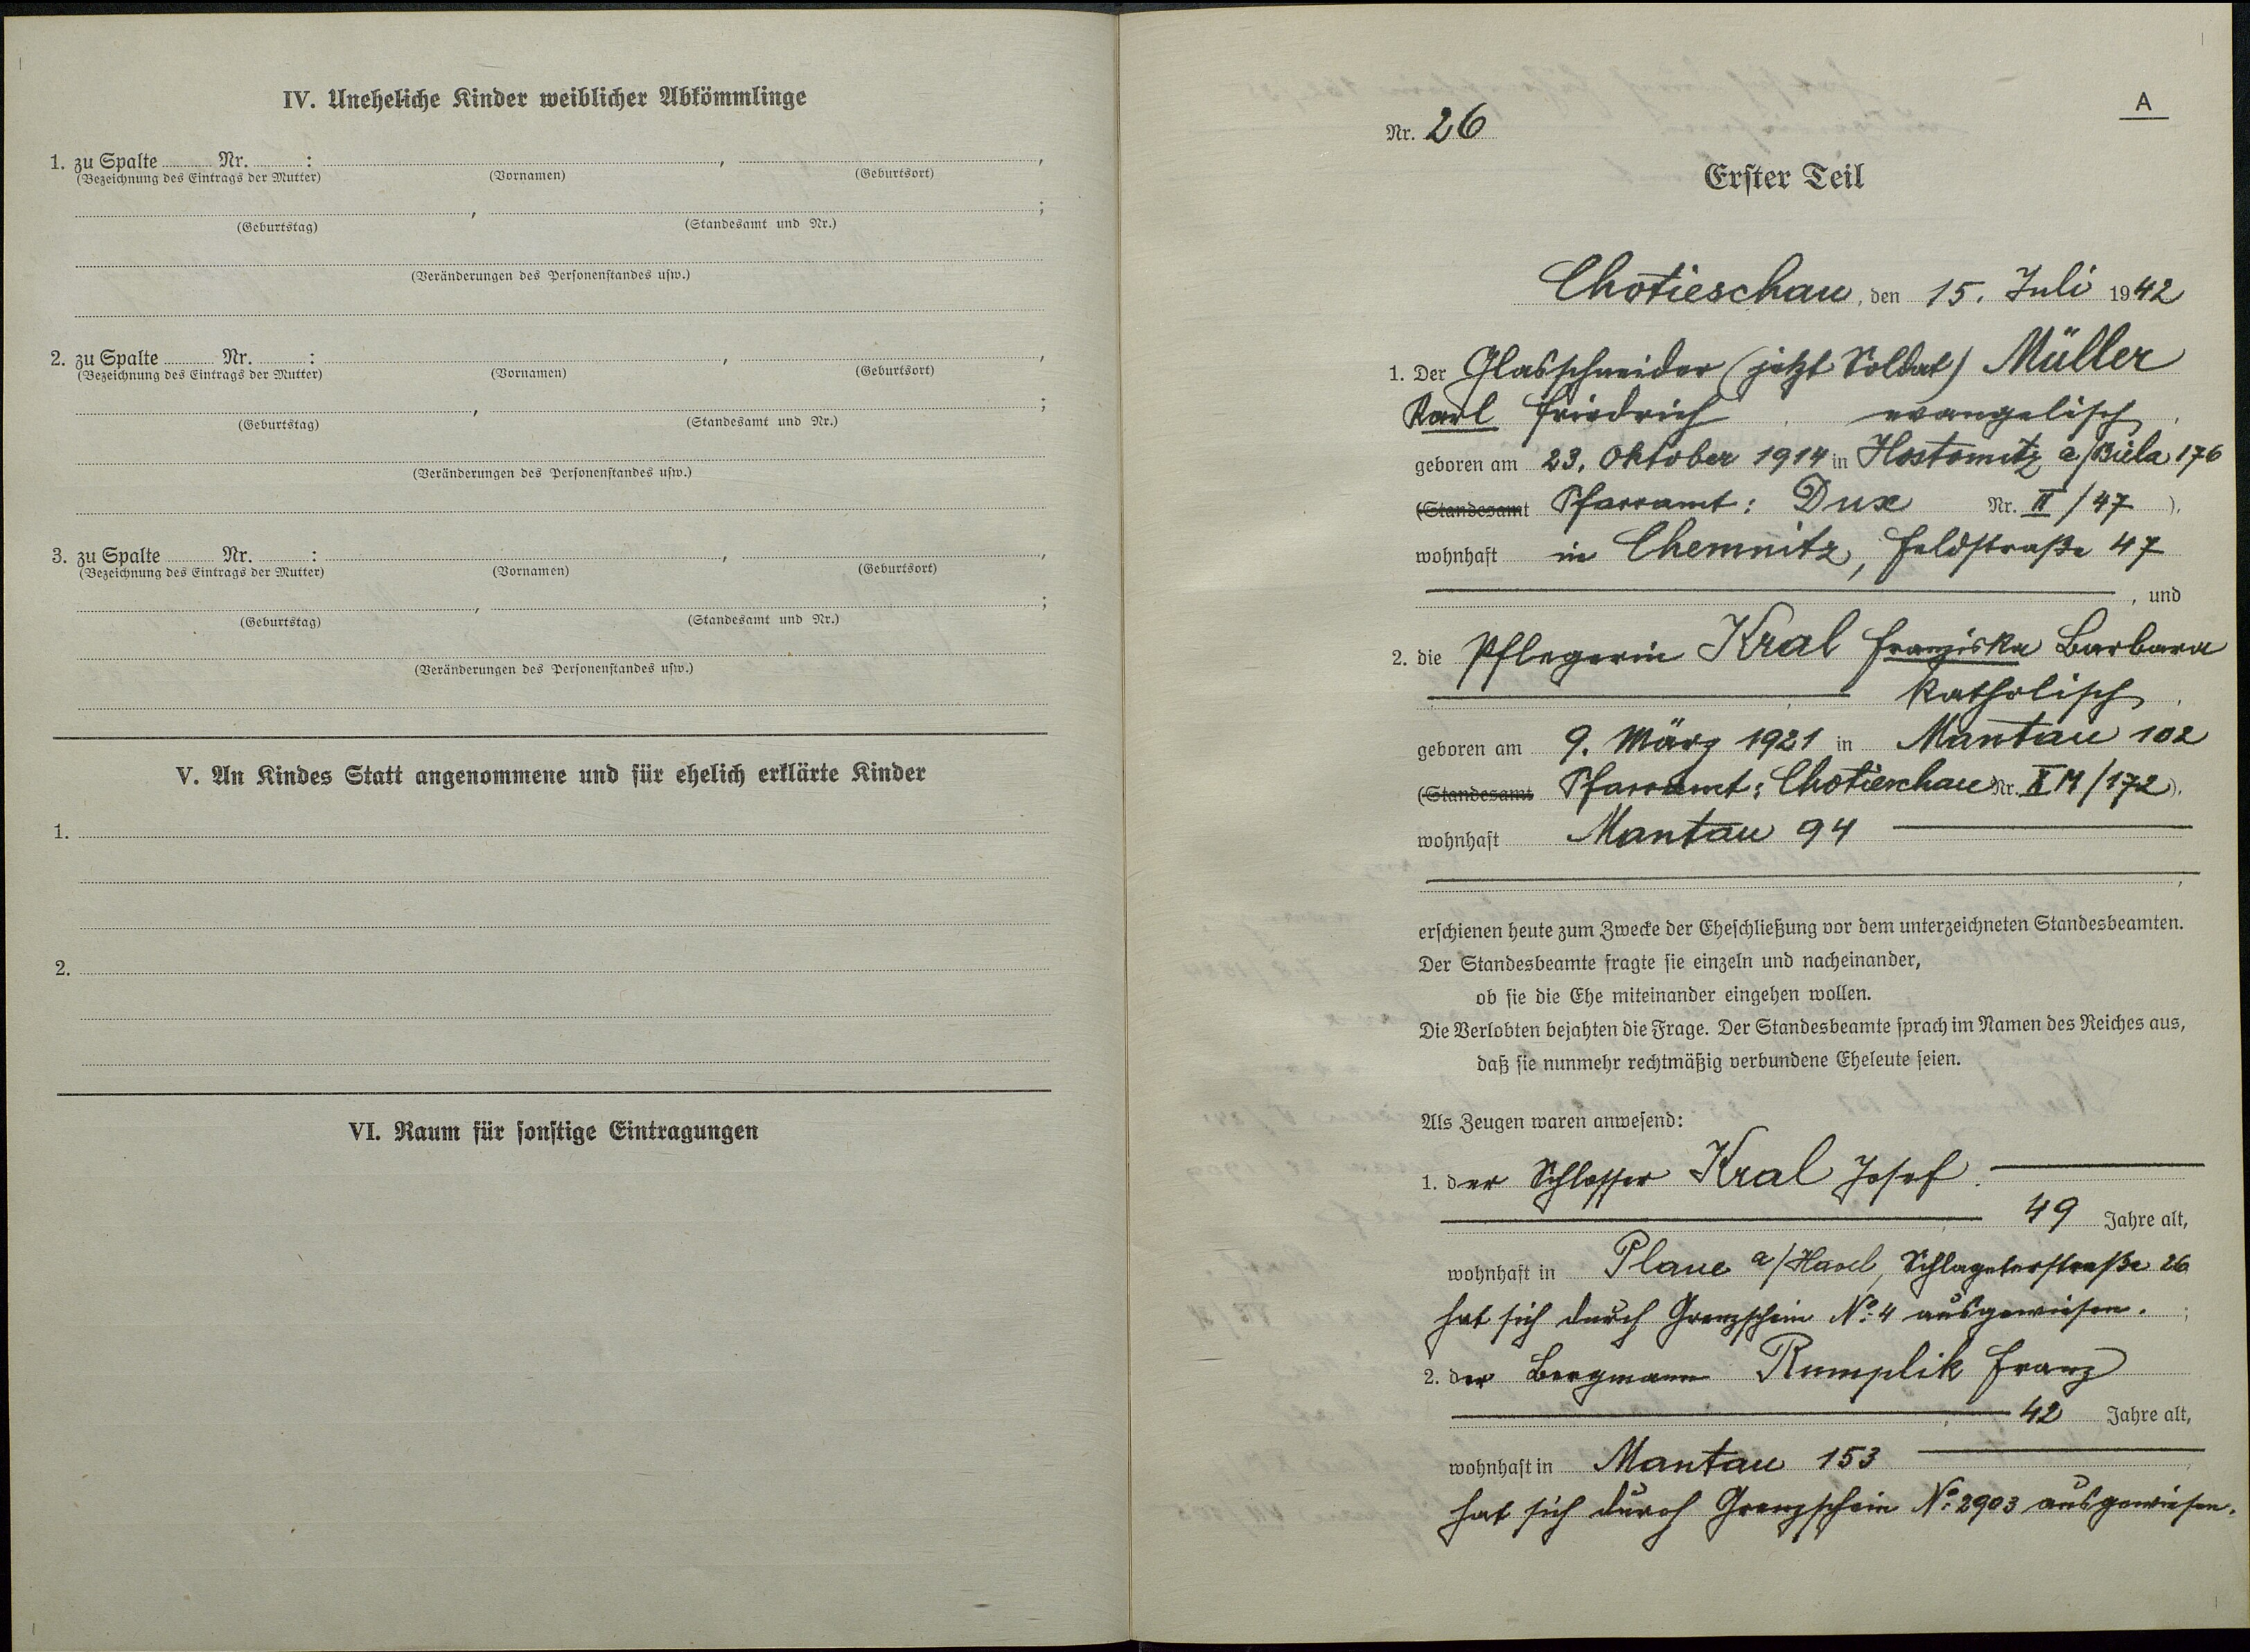 IV. Uneheliche Kinder weiblicher Abkömmlinge
1. zu Spalte Nr. : , ,
(Bezeichnung des Eintrags der Mutter) (Vornamen) (Geburtsort)
, ;
(Geburtstag) (Standesamt und Nr.)
(Veränderungen des Personenstandes usw.)
2. zu Spalte Nr. : , ,
(Bezeichnung des Eintrags der Mutter) (Vornamen) (Geburtsort)
, ;
(Geburtstag) (Standesamt und Nr.)
(Veränderungen des Personenstandes usw.)
3. zu Spalte Nr. : , ,
(Bezeichnung des Eintrags der Mutter) (Vornamen) (Geburtsort)
, ;
(Geburtstag) (Standesamt und Nr.)
(Veränderungen des Personenstandes usw.)
V. An Kindes Statt angenommene und für ehelich erklärte Kinder
1.
2.
VI. Raum für sonstige Eintragungen
A
Nr. 26
Erster Teil
Chotieschau, den 15. Juli 1942
1. Der Glasschneider (jetzt Soldat) Müller
Karl Friedrich evangelisch,
geboren am 23. Oktober 1914 in Hostomitz a/Biela 176
(Standesamt Pfarramt: Dux Nr. II/47),
wohnhaft in Chemnitz, Feldstraße 47
, und
2. die Pflegerin Kral Franziska Barbara
katholisch,
geboren am 9. März 1921 in Mantau 102
(Standesamt Pfarramt: Chotieschau Nr. X M/172),
wohnhaft Mantau 94
,
erschienen heute zum Zwecke der Eheschließung vor dem unterzeichneten Standesbeamten.
Der Standesbeamte fragte sie einzeln und nacheinander,
ob sie die Ehe miteinander eingehen wollen.
Die Verlobten bejahten die Frage. Der Standesbeamte sprach im Namen des Reiches aus,
daß sie nunmehr rechtmäßig verbundene Eheleute seien.
Als Zeugen waren anwesend:
1. der Schlosser Kral Josef.
, 49 Jahre alt,
wohnhaft in Plaue a/Havel, Schlageterstraße 26
hat sich durch Grenzschein No. 4 ausgewiesen. ;
2. der Bergmann Rumplik Franz
, 42 Jahre alt,
wohnhaft in Mantau 153
hat sich durch Grenzschein No. 2903 ausgewiesen.